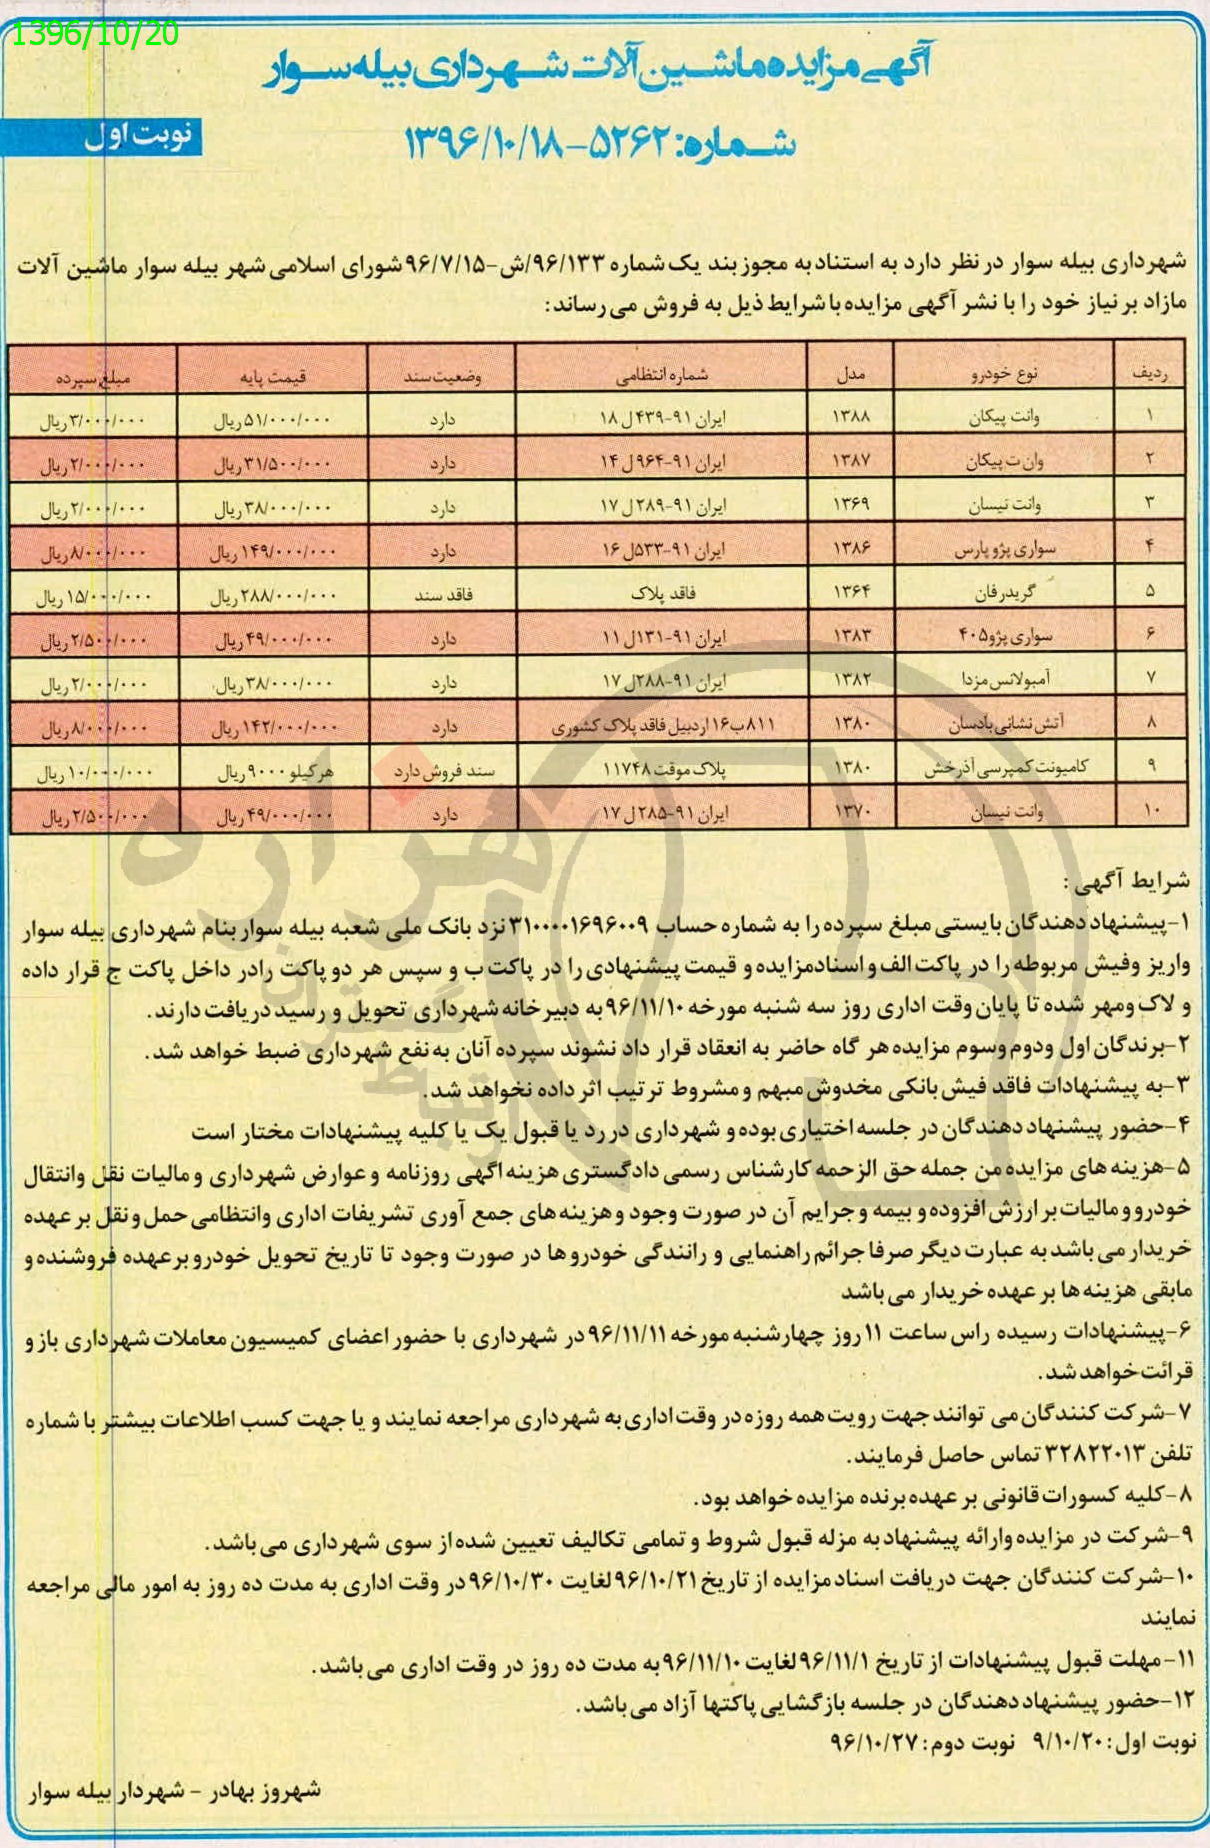 1396/10/20
آگهی مزایده ماشین آلات شهرداری بیله سوار
نوبت اول
شماره: ۵۲۶۲-۱۳۹۶/۱۰/۱۸
شهرداری بیله سوار در نظر دارد به استناد به مجوز بند یک شماره ۹۶/۱۳۳/ش-۹۶/۷/۱۵ شورای اسلامی شهر بیله سوار ماشین آلات
مازاد بر نیاز خود را با نشر آگهی مزایده با شرایط ذیل به فروش می رساند:
ردیف نوع خودرو مدل شماره انتظامی وضعیت سند قیمت پایه مبلغ سپرده
۱ وانت پیکان ۱۳۸۸ ایران ۹۱-۴۳۹ل ۱۸ دارد ۵۱/۰۰۰/۰۰۰ ریال ۳/۰۰۰/۰۰۰ ریال
۲ وان ت پیکان ۱۳۸۷ ایران ۹۱-۹۶۴ل ۱۴ دارد ۳۱/۵۰۰/۰۰۰ ریال ۲/۰۰۰/۰۰۰ ریال
۳ وانت نیسان ۱۳۶۹ ایران ۹۱-۲۸۹ل ۱۷ دارد ۳۸/۰۰۰/۰۰۰ ریال ۲/۰۰۰/۰۰۰ ریال
۴ سواری پژو پارس ۱۳۸۶ ایران ۹۱-۵۳۳ل ۱۶ دارد ۱۴۹/۰۰۰/۰۰۰ ریال ۸/۰۰۰/۰۰۰ ریال
۵ گریدر فان ۱۳۶۴ فاقد پلاک فاقد سند ۲۸۸/۰۰۰/۰۰۰ ریال ۱۵/۰۰۰/۰۰۰ ریال
۶ سواری پژو ۴۰۵ ۱۳۸۳ ایران ۹۱-۱۳۱ل ۱۱ دارد ۴۹/۰۰۰/۰۰۰ ریال ۲/۵۰۰/۰۰۰ ریال
۷ آمبولانس مزدا ۱۳۸۲ ایران ۹۱-۲۸۸ل ۱۷ دارد ۳۸/۰۰۰/۰۰۰ ریال ۲/۰۰۰/۰۰۰ ریال
۸ آتش نشانی بادسان ۱۳۸۰ ۸۱۱ب۱۶ اردبیل فاقد پلاک کشوری دارد ۱۴۲/۰۰۰/۰۰۰ ریال ۸/۰۰۰/۰۰۰ ریال
۹ کامیونت کمپرسی آذرخش ۱۳۸۰ پلاک موقت ۱۱۷۴۸ سند فروش دارد هر کیلو ۹۰۰۰ ریال ۱۰/۰۰۰/۰۰۰ ریال
۱۰ وانت نیسان ۱۳۷۰ ایران ۹۱-۲۸۵ل ۱۷ دارد ۴۹/۰۰۰/۰۰۰ ریال ۲/۵۰۰/۰۰۰ ریال
شرایط آگهی :
۱-پیشنهاد دهندگان بایستی مبلغ سپرده را به شماره حساب ۳۱۰۰۰۰۱۶۹۶۰۰۹ نزد بانک ملی شعبه بیله سوار بنام شهرداری بیله سوار
واریز وفیش مربوطه را در پاکت الف و اسناد مزایده و قیمت پیشنهادی را در پاکت ب و سپس هر دو پاکت رادر داخل پاکت ج قرار داده
و لاک ومهر شده تا پایان وقت اداری روز سه شنبه مورخه ۹۶/۱۱/۱۰ به دبیرخانه شهرداری تحویل و رسید دریافت دارند.
۲-برندگان اول ودوم وسوم مزایده هر گاه حاضر به انعقاد قرار داد نشوند سپرده آنان به نفع شهرداری ضبط خواهد شد.
۳-به پیشنهادات فاقد فیش بانکی مخدوش مبهم و مشروط ترتیب اثر داده نخواهد شد.
۴-حضور پیشنهاد دهندگان در جلسه اختیاری بوده و شهرداری در رد یا قبول یک یا کلیه پیشنهادات مختار است
۵-هزینه های مزایده من جمله حق الزحمه کارشناس رسمی دادگستری هزینه اگهی روزنامه و عوارض شهرداری و مالیات نقل وانتقال
خودرو و مالیات بر ارزش افزوده و بیمه و جرایم آن در صورت وجود و هزینه های جمع آوری تشریفات اداری وانتظامی حمل و نقل بر عهده
خریدار می باشد به عبارت دیگر صرفا جرائم راهنمایی و رانندگی خودرو ها در صورت وجود تا تاریخ تحویل خودرو بر عهده فروشنده و
مابقی هزینه ها بر عهده خریدار می باشد
۶-پیشنهادات رسیده راس ساعت ۱۱ روز چهارشنبه مورخه ۹۶/۱۱/۱۱ در شهرداری با حضور اعضای کمیسیون معاملات شهرداری باز و
قرائت خواهد شد.
۷-شرکت کنندگان می توانند جهت رویت همه روزه در وقت اداری به شهرداری مراجعه نمایند و یا جهت کسب اطلاعات بیشتر با شماره
تلفن ۳۲۸۲۲۰۱۳ تماس حاصل فرمایند.
۸-کلیه کسورات قانونی بر عهده برنده مزایده خواهد بود.
۹-شرکت در مزایده وارائه پیشنهاد به مزله قبول شروط و تمامی تکالیف تعیین شده از سوی شهرداری می باشد.
۱۰-شرکت کنندگان جهت دریافت اسناد مزایده از تاریخ ۹۶/۱۰/۲۱ لغایت ۹۶/۱۰/۳۰ در وقت اداری به مدت ده روز به امور مالی مراجعه
نمایند
۱۱-مهلت قبول پیشنهادات از تاریخ ۹۶/۱۱/۱ لغایت ۹۶/۱۱/۱۰ به مدت ده روز در وقت اداری می باشد.
۱۲-حضور پیشنهاد دهندگان در جلسه بازگشایی پاکتها آزاد می باشد.
نوبت اول: ۹/۱۰/۲۰ نوبت دوم: ۹۶/۱۰/۲۷
شهروز بهادر - شهردار بیله سوار